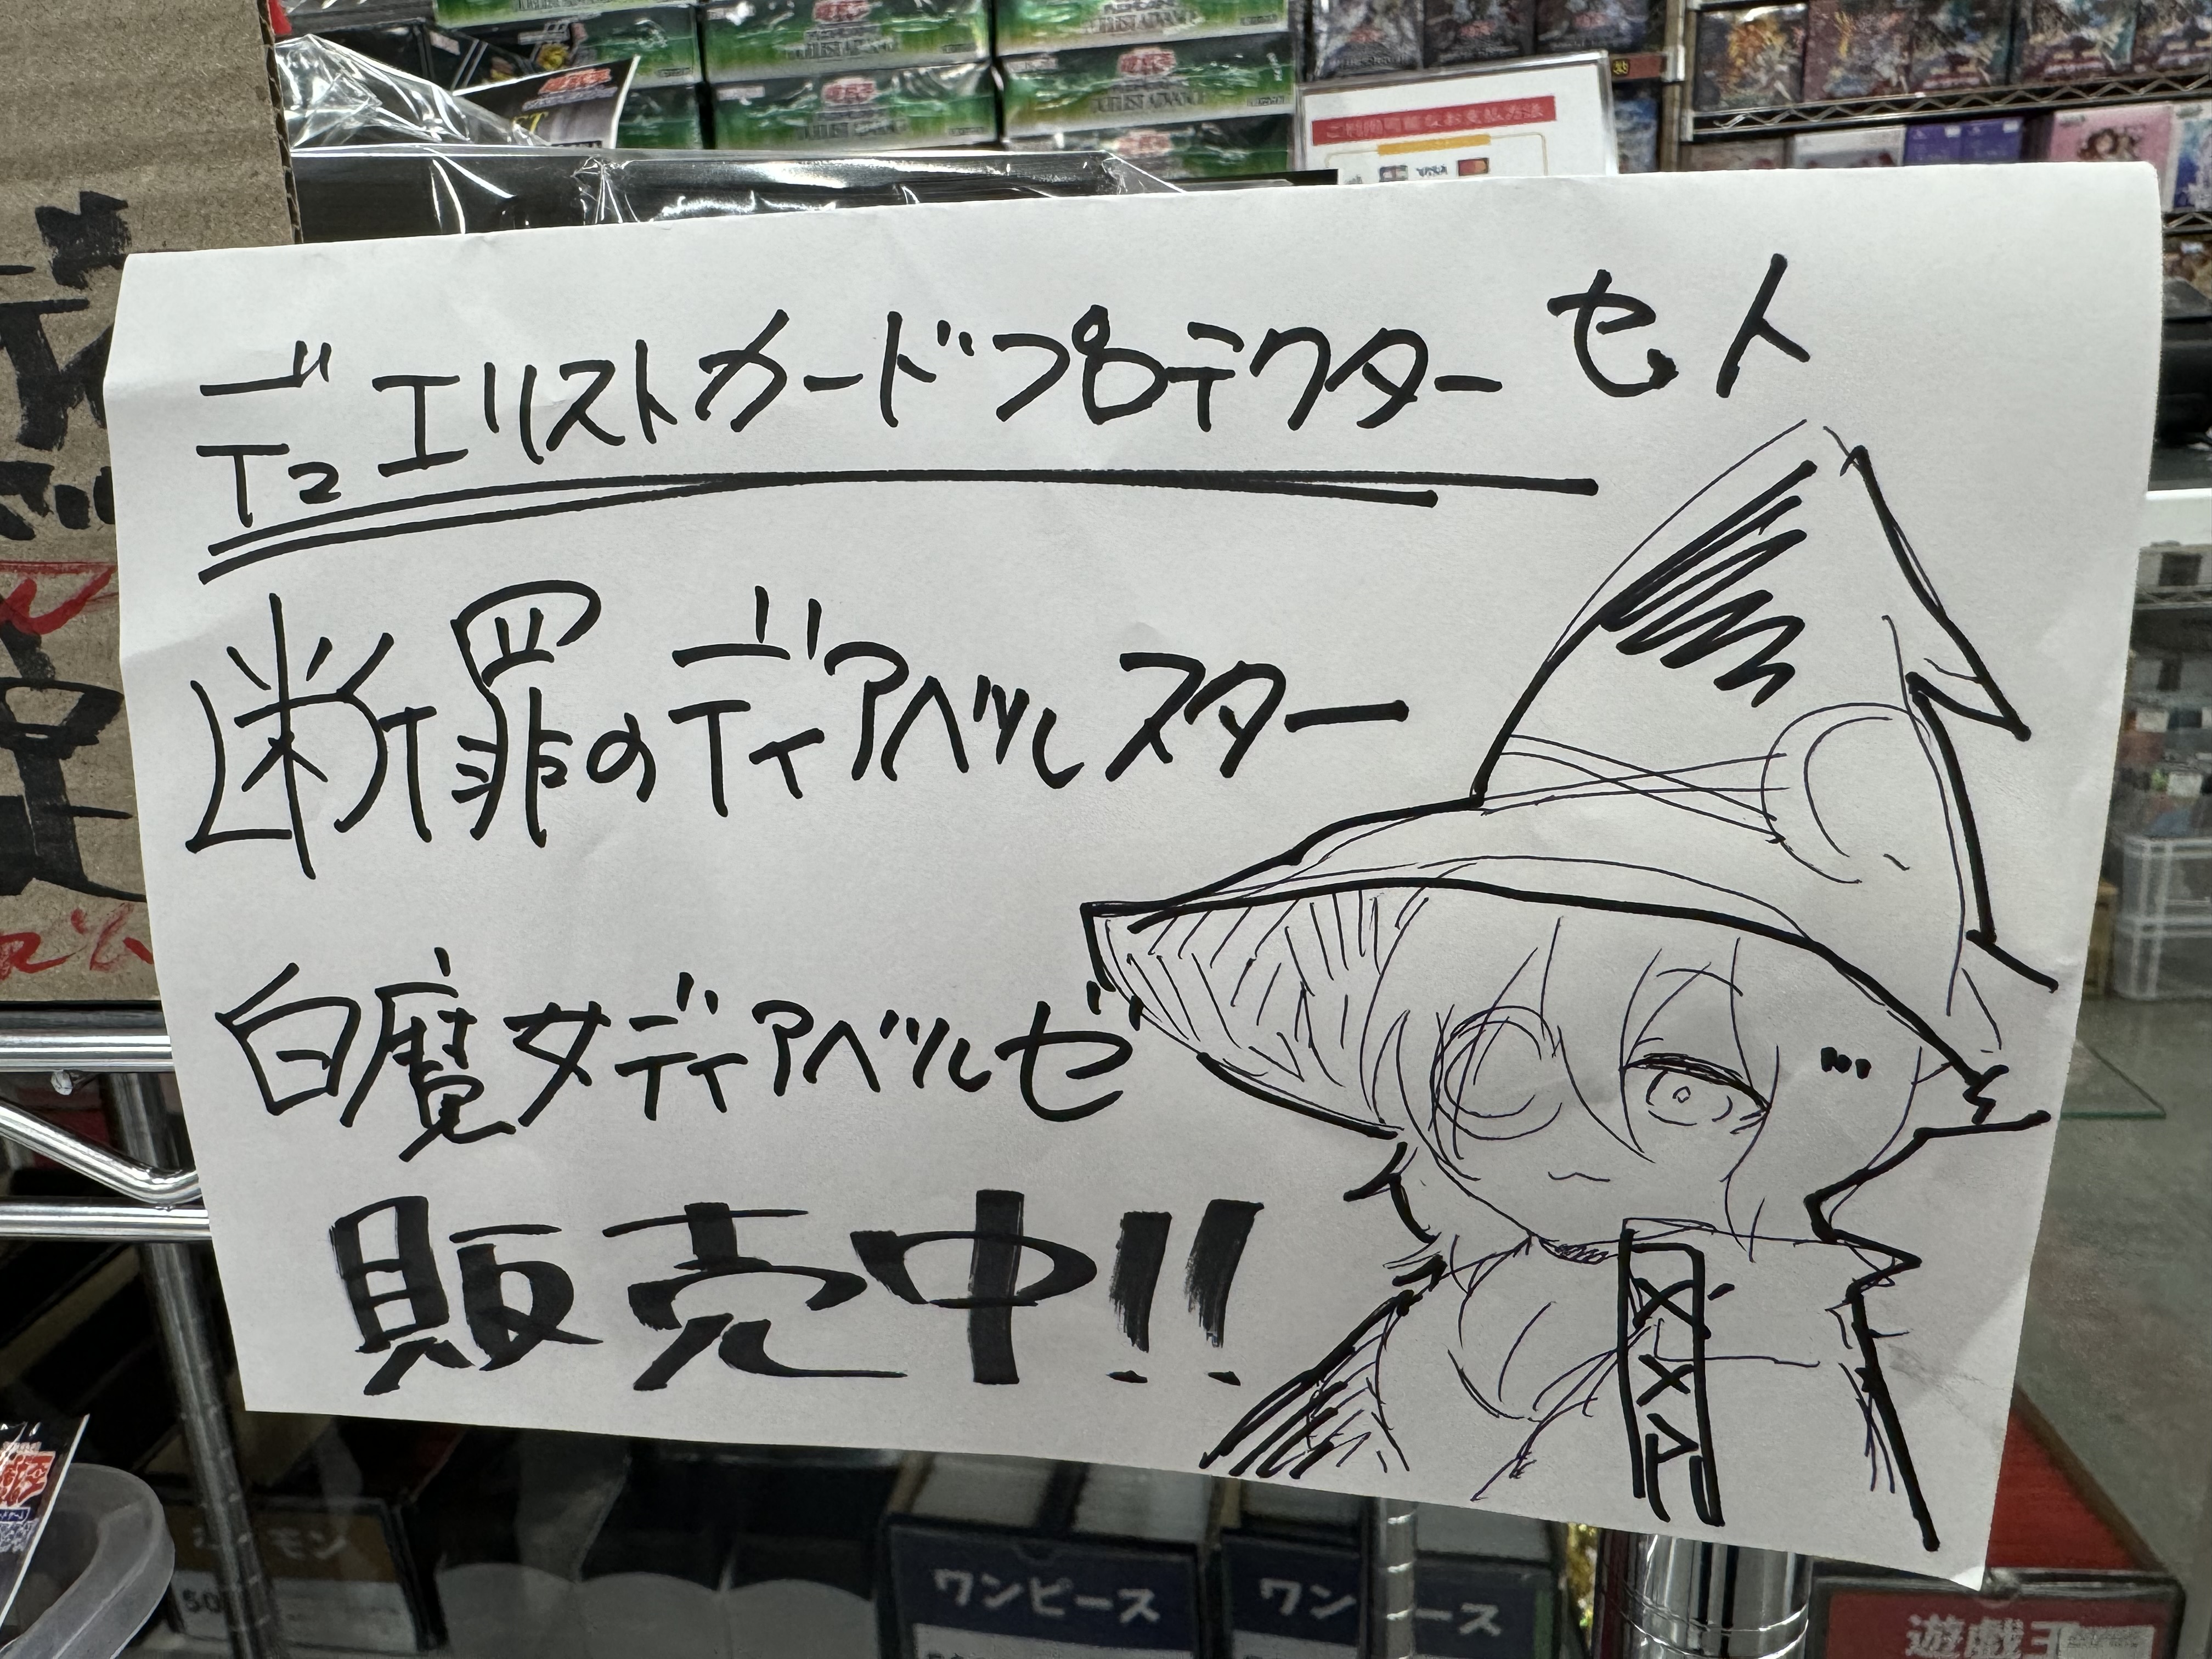 デュエリストカードプロテクター セト
断罪のディアベルスター
白魔女ディアベルゼ
販売中!!
DUELIST ADVANCE
ご利用可能なお支払方法
ワンピース
遊戯王